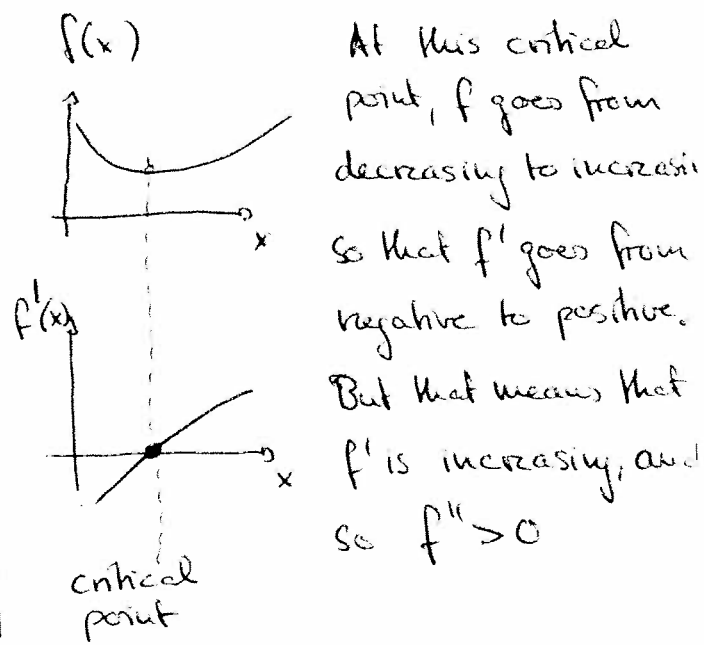 f(x)
x
f'(x)
x
critical
point
At this critical
point, f goes from
decreasing to increasi
so that f' goes from
negative to positive.
But that means that
f' is increasing, and
so f">0